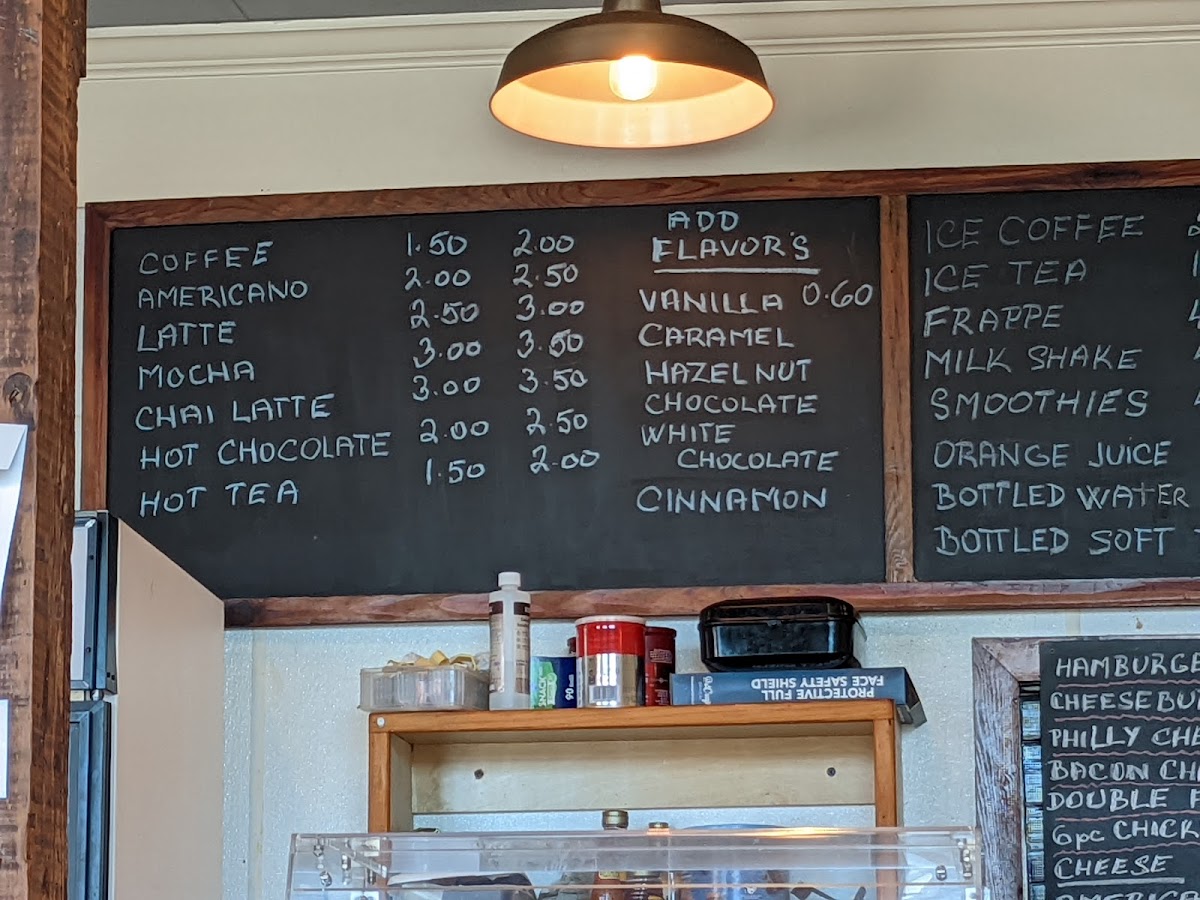 COFFEE 1.50 2.00
AMERICANO 2.00 2.50
LATTE 2.50 3.00
MOCHA 3.00 3.50
CHAI LATTE 3.00 3.50
HOT CHOCOLATE 2.00 2.50
HOT TEA 1.50 2.00
ADD
FLAVOR'S
VANILLA 0.60
CARAMEL
HAZELNUT
CHOCOLATE
WHITE
CHOCOLATE
CINNAMON
ICE COFFEE
ICE TEA
FRAPPE
MILK SHAKE
SMOOTHIES
ORANGE JUICE
BOTTLED WATER
BOTTLED SOFT
SNACK
90
PROTECTIVE FULL
FACE SAFETY SHIELD
HAMBURGE
CHEESEBU
PHILLY CHE
BACON CH
DOUBLE
6pc CHICK
CHEESE